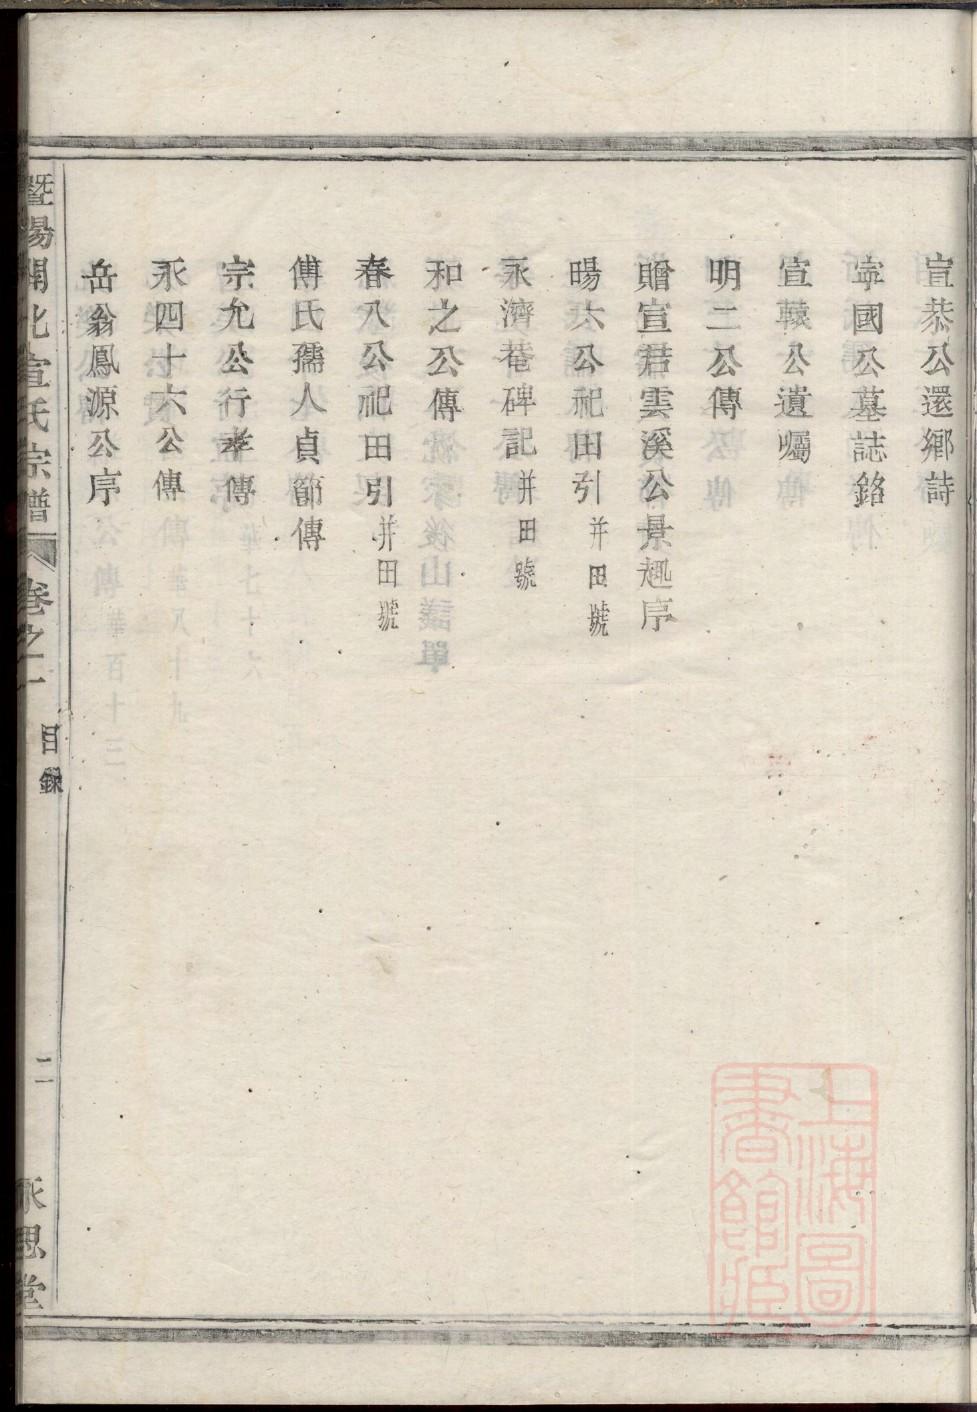 宣恭公還鄉詩
寕國公墓誌銘
宣轅公遺囑
明二公傳
贈宣君雲溪公景趣序
暘六公祀田引 并田號
永濟菴碑記 并田號
和之公傳
春八公祀田引 并田號
傅氏孺人貞節傳
宗允公行孝傳
永四十六公傳
岳翁鳳源公序
暨陽開化宣氏宗譜 卷之一 目錄 二 永思堂
上海圖書館藏